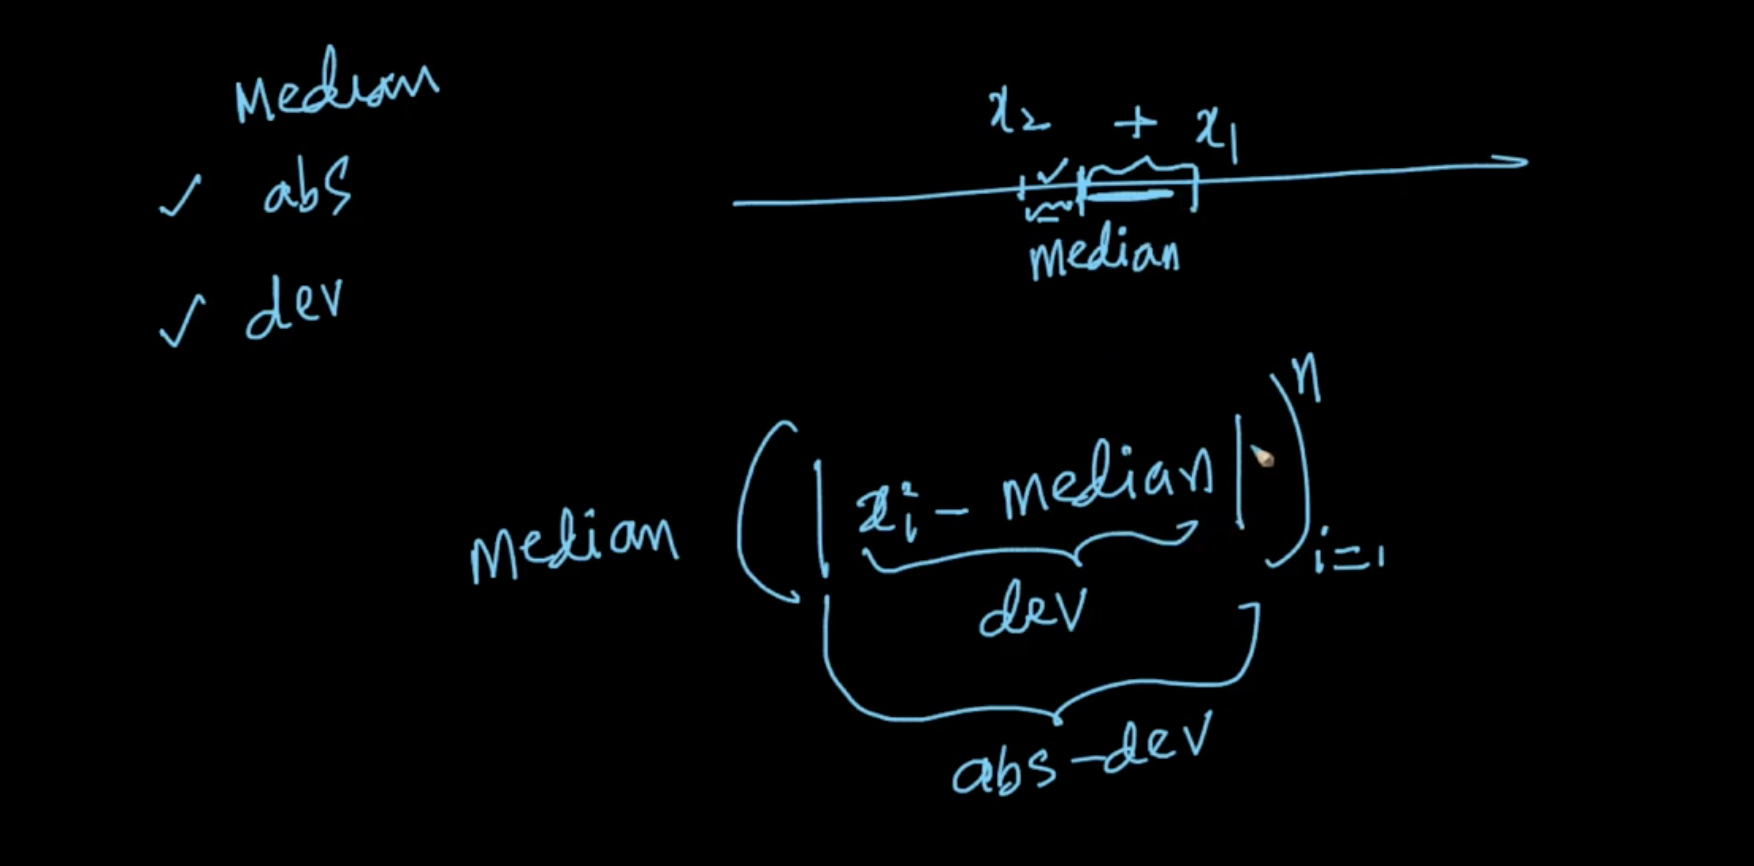 Median
abs
dev
x2 + x1
median
Median ( | xi - median | )
n
i=1
dev
abs-dev